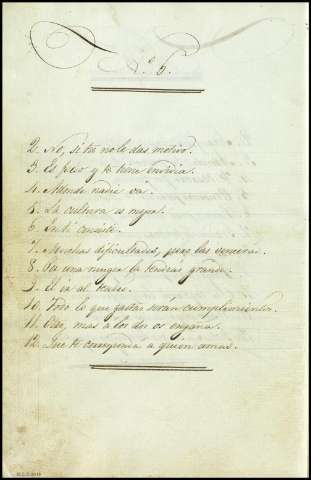 N.º 5.
2. No, si tú no le das motivo.
3. Es feo y te tiene envidia.
4. Adonde nadie vá.
5. La cultura es mejor.
6. En ti consiste.
7. Muchas dificultades, pero las vencerás.
8. Da una muger la tendrás grande.
9. Él vá al
10. Todo lo que faltar serán cumplimientos.
11. mas a los dos os engaña.
12. Que te corresponda á quien amas.